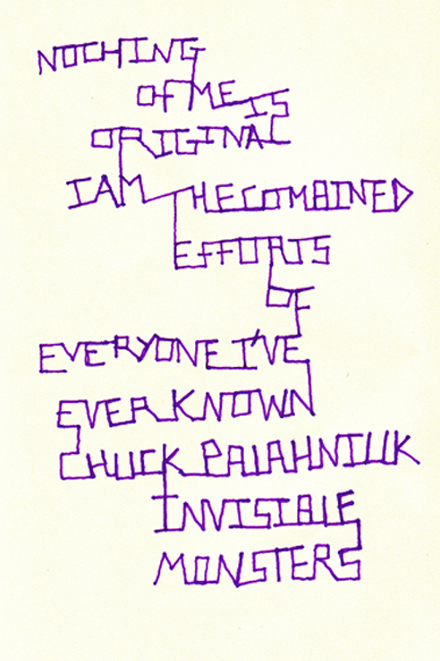 NOTHING
OF ME IS
ORIGINAL
I AM THE COMBINED
EFFORTS
OF
EVERYONE I'VE
EVER KNOWN
CHUCK PALAHNIUK
INVISIBLE
MONSTERS